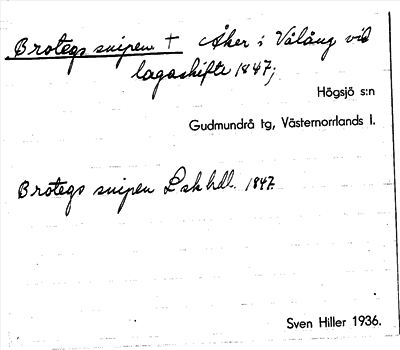 Brotegs snipen † Åker i Vålång vid
lagaskifte 1847;
Högsjö s:n
Gudmundrå tg, Västernorrlands l.
Brotegs snipen Lskhdl. 1847
Sven Hiller 1936.